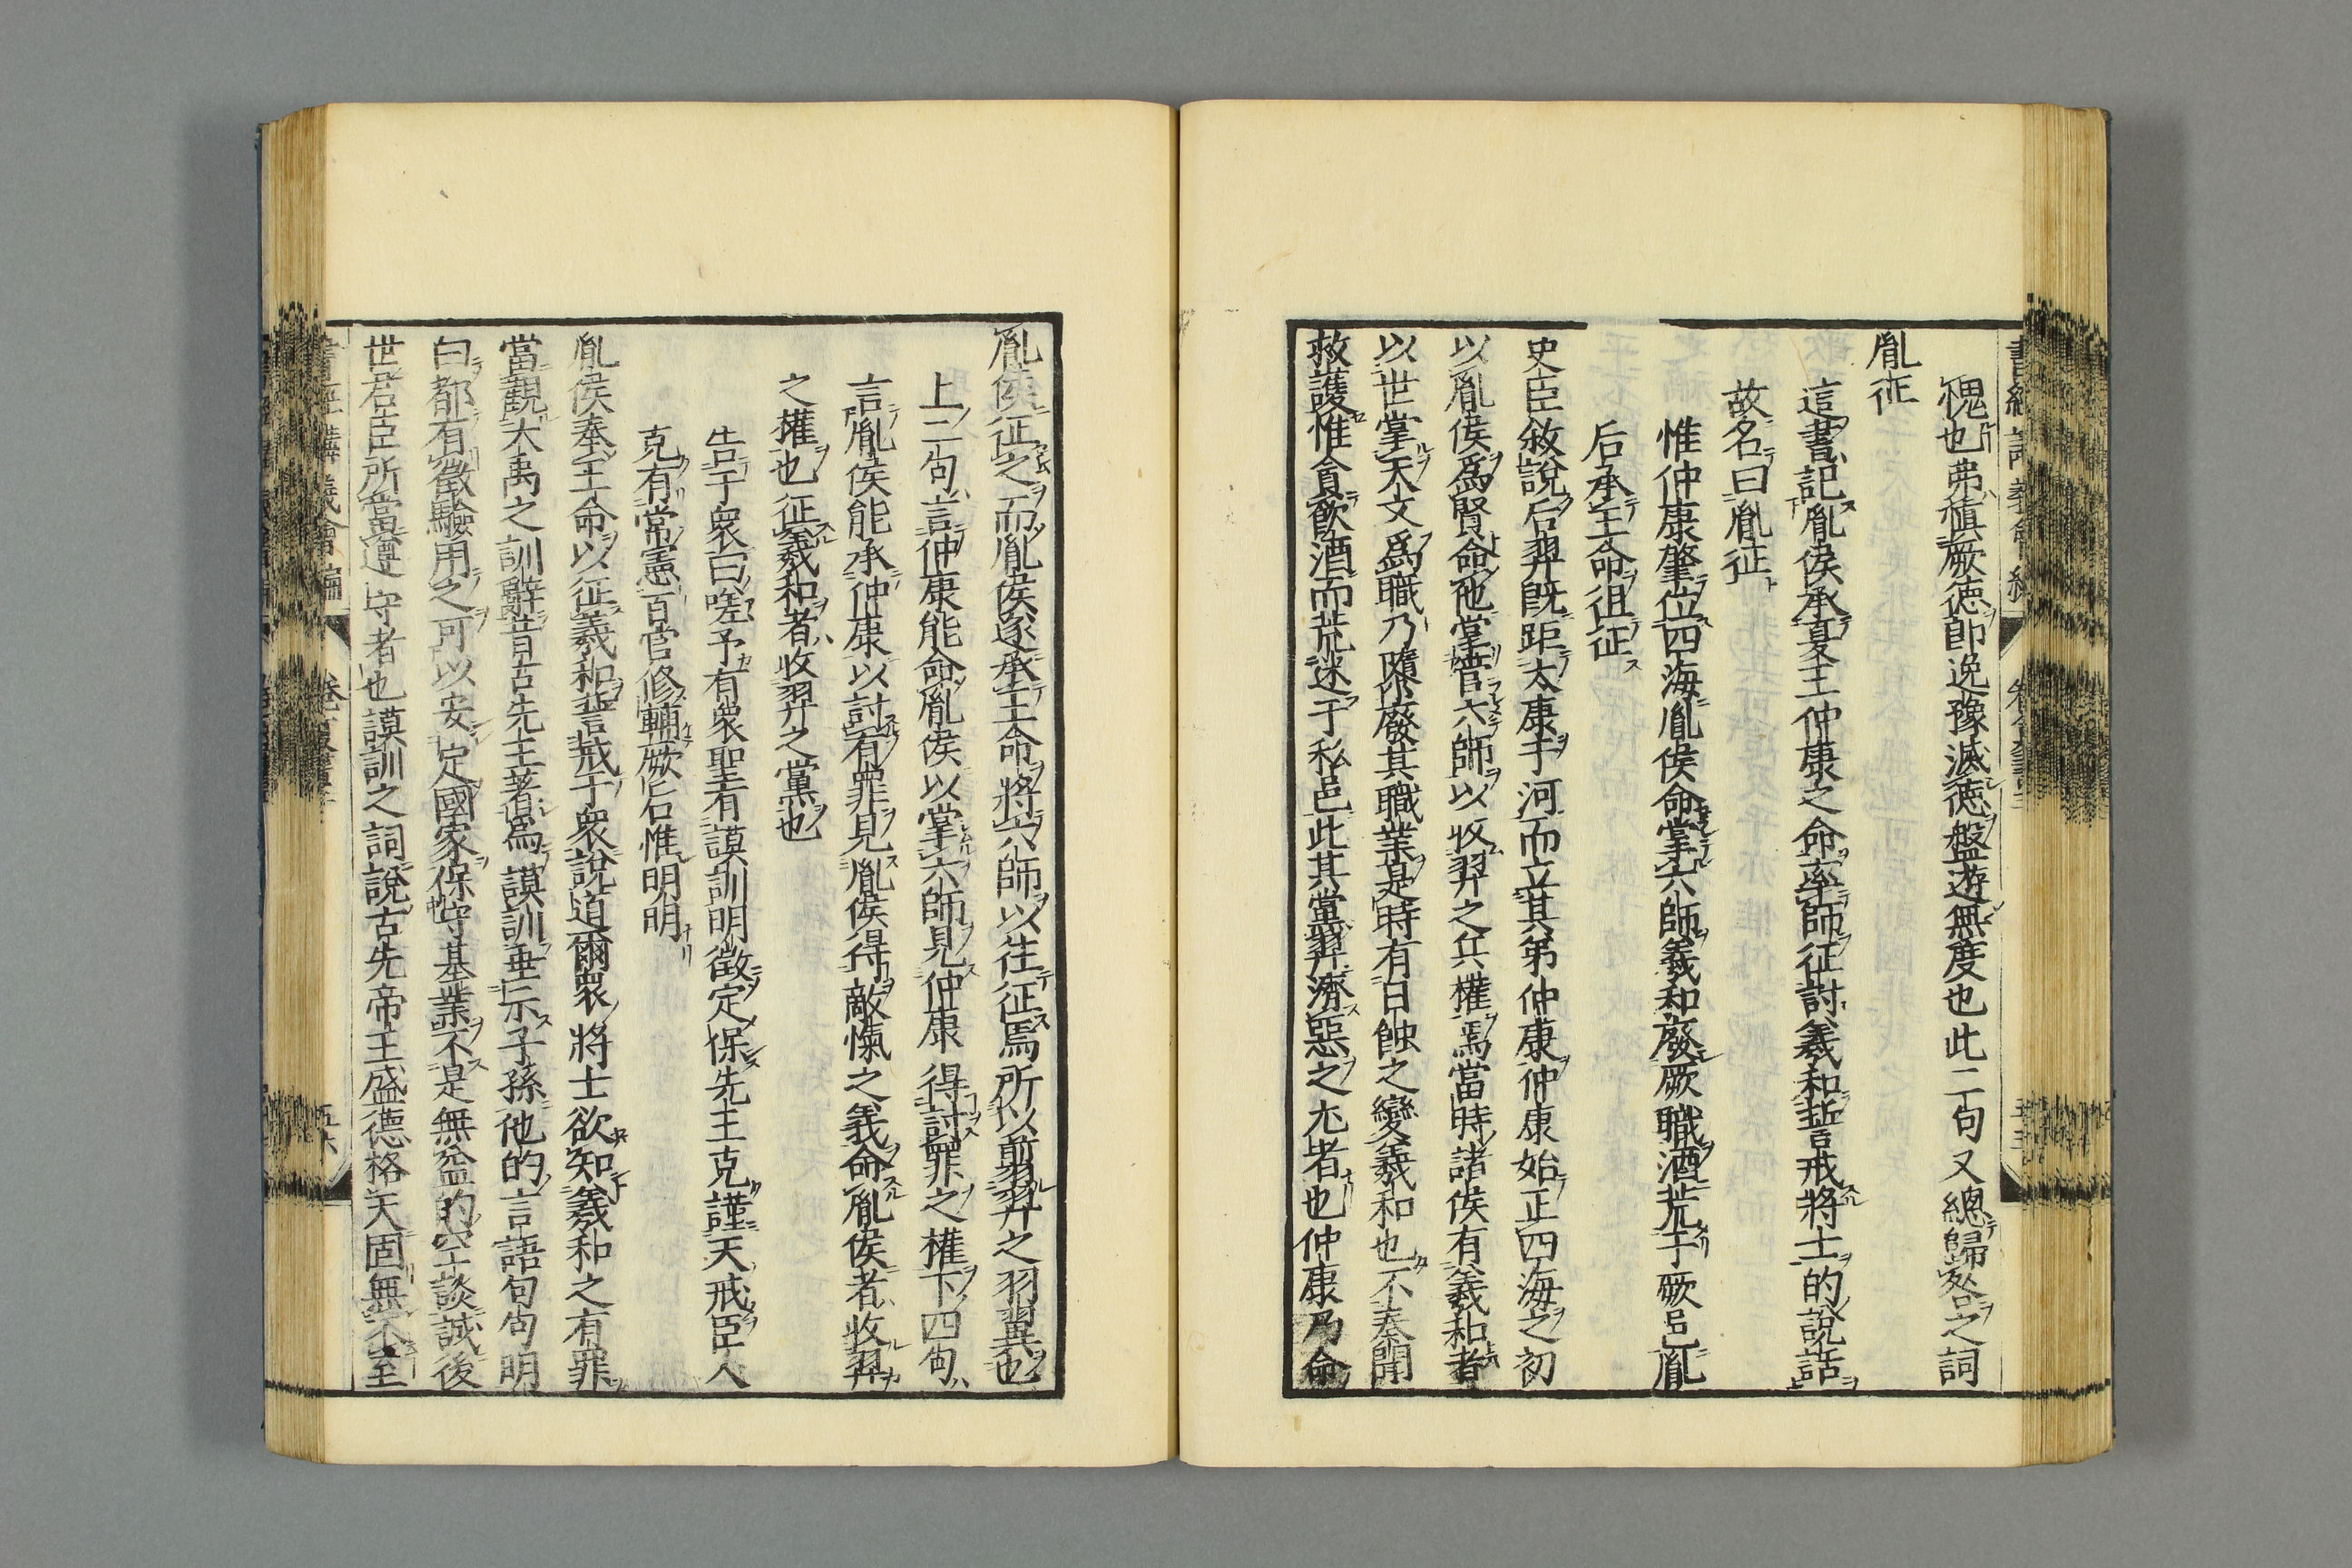 愧也弗愼厥徳卽逸豫滅徳盤遊無度也此二句又總歸咎之詞
胤征
這書記胤侯承夏王仲康之命率師征討羲和誓戒將士的說話
故名曰胤征
惟仲康肇位四海胤侯命掌六師羲和廢厥職酒荒于厥邑胤
后承王命徂征
史臣敘說后羿既距太康于河而立其弟仲康仲康始正四海之初
以胤侯爲賢命他掌管六師以收羿之兵權焉當時諸侯有羲和者
以世掌天文爲職乃隳廢其職業是時有日蝕之變羲和也不奏聞
救護惟貪飮酒而荒迷于私邑此其黨羿濟惡之尤者也仲康乃命
胤侯征之而胤侯遂承王命將六師以往征焉所以剪羿之羽翼也
上二句言仲康能命胤侯以掌六師見仲康得討罪之權下四句
言胤侯能承仲康以討有罪見胤侯得敵愾之義命胤侯者收羿
之權也征羲和者收羿之黨也
告于衆曰嗟予有衆聖有謨訓明徵定保先王克謹天戒臣人
克有常憲百官修輔厥后惟明明
胤侯奉王命以征羲和誓戒于衆說道爾衆將士欲知羲和之有罪
當觀大禹之訓辭昔古先王著爲謨訓垂示子孫他的言語句句明
白都有徵驗用之可以安定國家保守基業不是無益的空談誠後
世君臣所當遵守者也謨訓之詞說古先帝王盛德格天固無不至